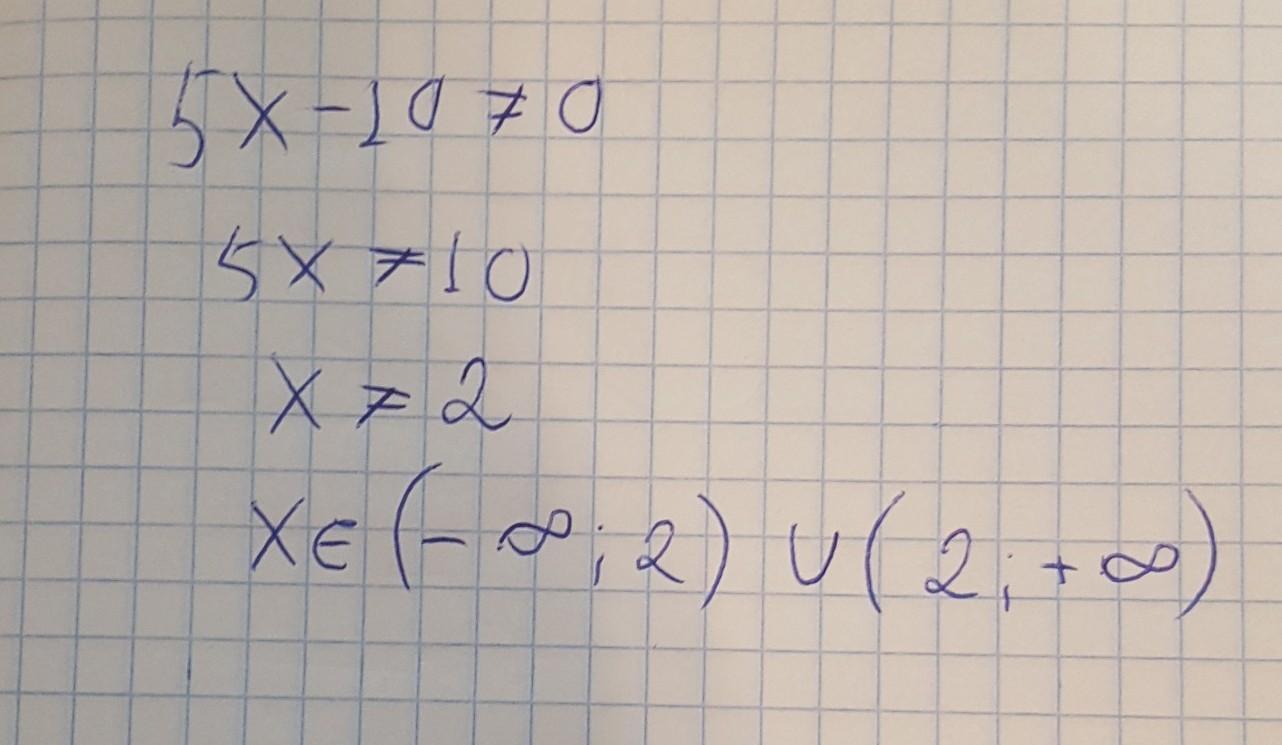 5x-10≠0
5x≠10
x≠2
x∈(-∞;2)∪(2;+∞)